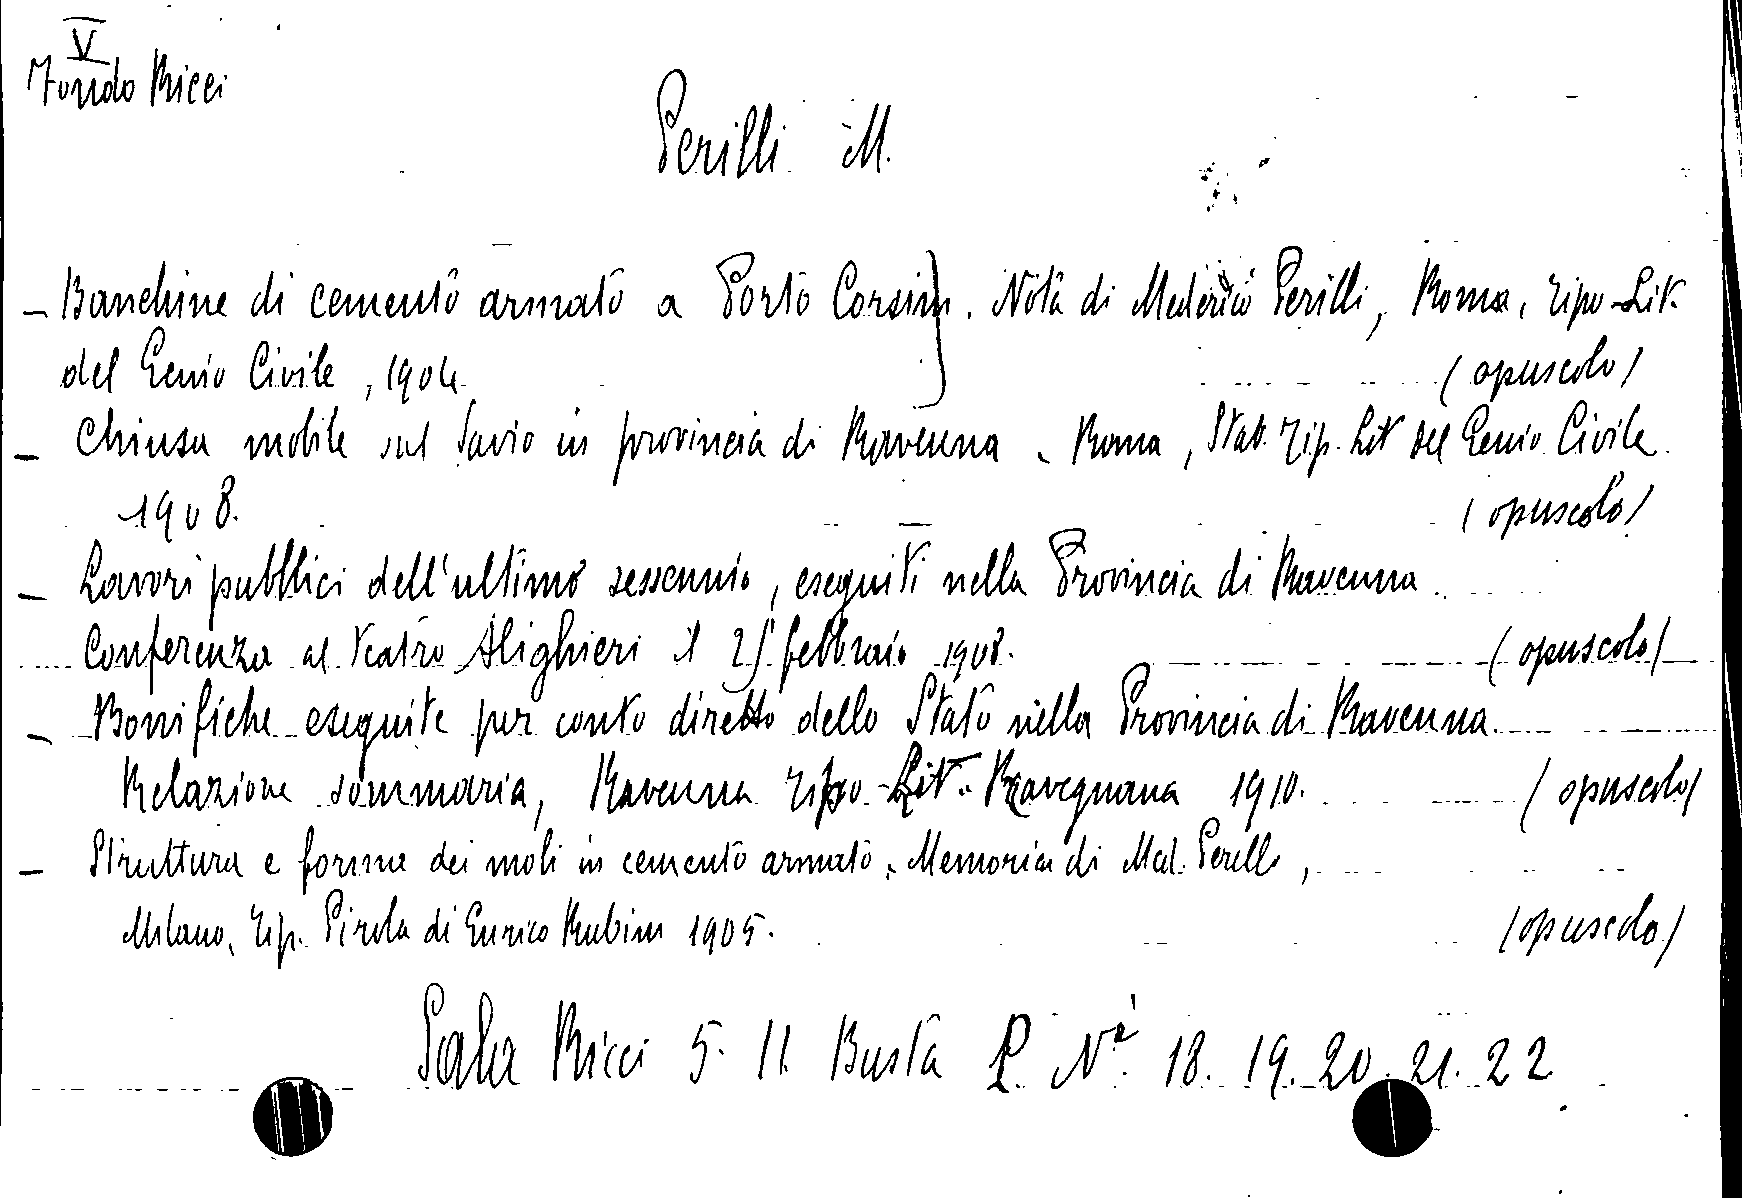 V
Fondo Ricci
Perilli M.
- Banchine di cemento armato a Porto Corsini. Nota di Mederico Perilli, Roma, Tipo-Lit.
del Genio Civile, 1904. (opuscolo)
- Chiusa mobile sul Savio in provincia di Ravenna. Roma, Stab. Tip. Lit del Genio Civile
1908. (opuscolo)
- Lavori pubblici dell'ultimo sessennio, eseguiti nella Provincia di Ravenna
Conferenza al Teatro Alighieri il febbraio 1908. (opuscolo)
- Bonifiche eseguite per conto diretto dello Stato nella Provincia di Ravenna.
Relazione sommaria, Ravenna Tipo-Lit. Ravegnana 1910. (opuscolo)
- Struttura e forma dei moli in cemento armato. Memoria di Med. Perilli,
Milano, Tip. Pirola di Enrico Rubini 1905. (opuscolo)
Sala Ricci 5. 11 Busta P. Nⁱ 18. 19. 20. 21. 22